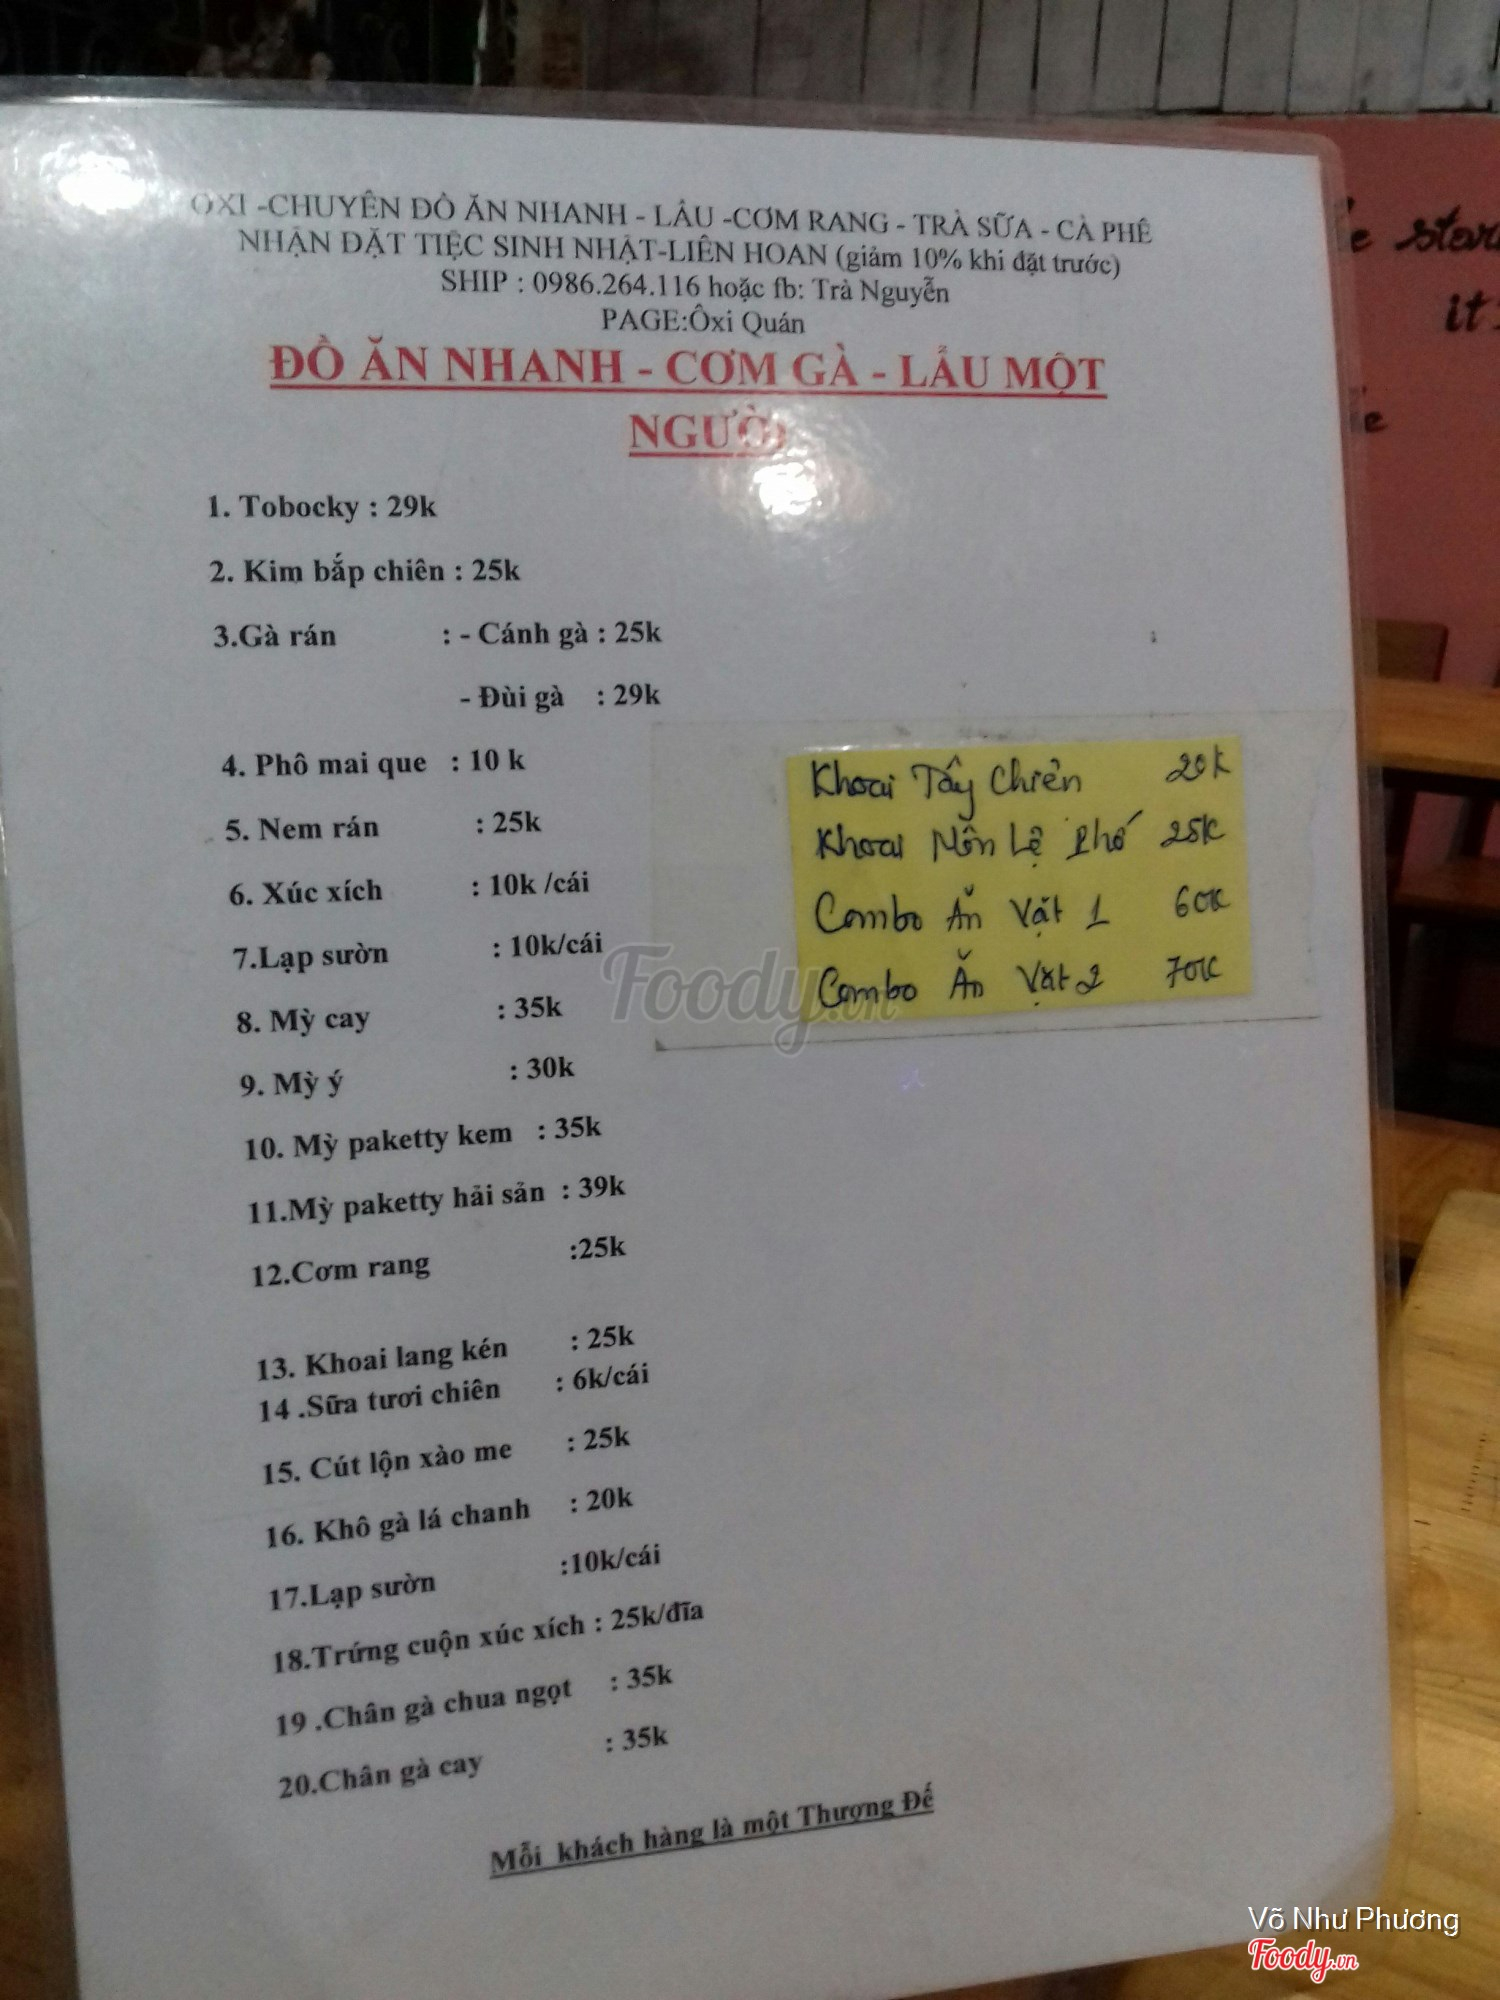 OXI -CHUYÊN ĐỒ ĂN NHANH - LẨU -CƠM RANG - TRÀ SỮA - CÀ PHÊ
NHẬN ĐẶT TIỆC SINH NHẬT-LIÊN HOAN (giảm 10% khi đặt trước)
SHIP : 0986.264.116 hoặc fb: Trà Nguyễn
PAGE:Ôxi Quán
ĐỒ ĂN NHANH - CƠM GÀ - LẨU MỘT
NGƯỜI
1. Tobocky : 29k
2. Kim bắp chiên : 25k
3.Gà rán : - Cánh gà : 25k
- Đùi gà : 29k
4. Phô mai que : 10 k
5. Nem rán : 25k
6. Xúc xích : 10k /cái
7.Lạp sườn : 10k/cái
8. Mỳ cay : 35k
9. Mỳ ý : 30k
10. Mỳ paketty kem : 35k
11.Mỳ paketty hải sản : 39k
12.Cơm rang :25k
13. Khoai lang kén : 25k
14 .Sữa tươi chiên : 6k/cái
15. Cút lộn xào me : 25k
16. Khô gà lá chanh : 20k
17.Lạp sườn :10k/cái
18.Trứng cuộn xúc xích : 25k/đĩa
19 .Chân gà chua ngọt : 35k
20.Chân gà cay : 35k
Mỗi khách hàng là một Thượng Đế
Khoai Tây Chiên 20k
Khoai Môn Lệ Phố 25K
Combo Ăn Vặt 1 60K
Combo Ăn Vặt 2 70K
Foody.vn
it
Võ Như Phương
Foody.vn